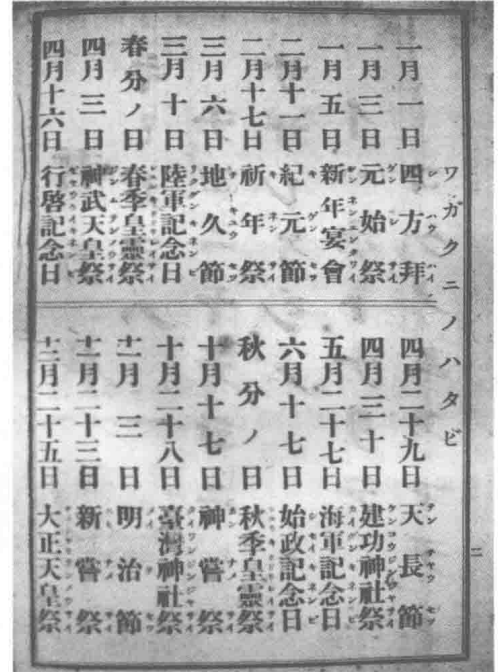 ワガクニノハタビ
一月一日 四方拜
一月三日 元始祭
一月五日 新年宴會
二月十一日 紀元節
二月十七日 祈年祭
三月六日 地久節
三月十日 陸軍記念日
春分ノ日 春季皇靈祭
四月三日 神武天皇祭
四月十六日 行啓記念日
四月二十九日 天長節
四月三十日 建功神社祭
五月二十七日 海軍記念日
六月十七日 始政記念日
秋分ノ日 秋季皇靈祭
十月十七日 神嘗祭
十月二十八日 臺灣神社祭
十一月三日 明治節
十一月二十三日 新嘗祭
十二月二十五日 大正天皇祭
二